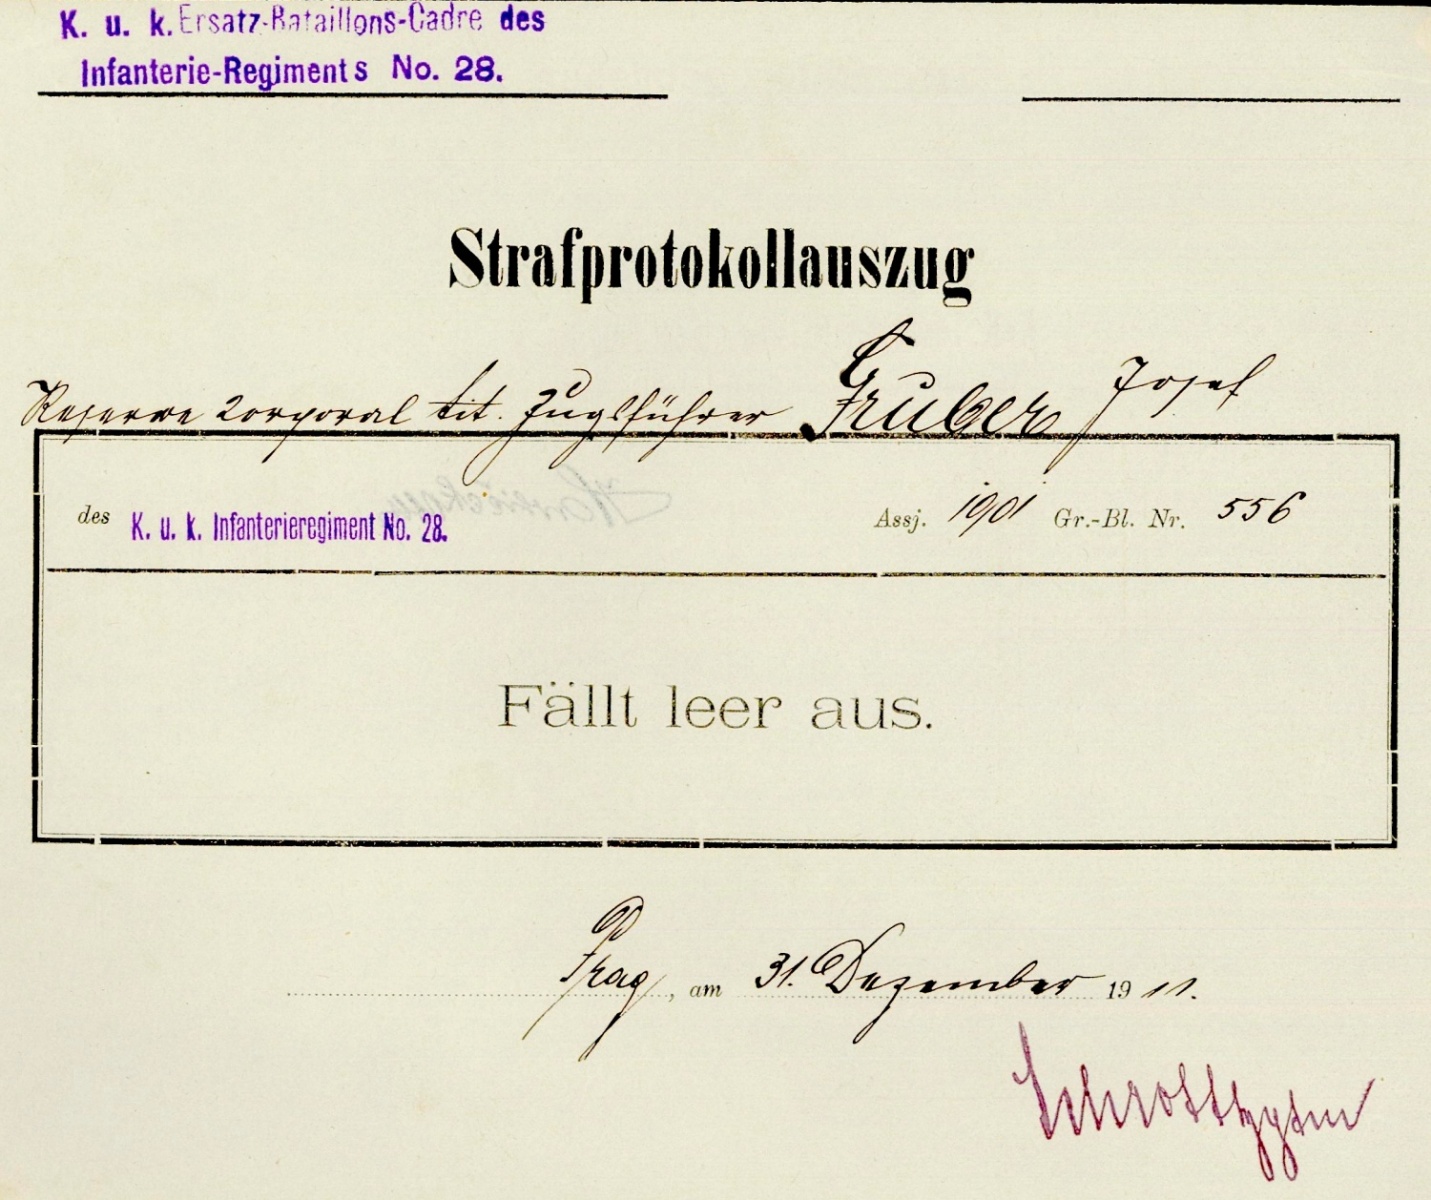 K. u. k. Ersatz-Bataillons-Cadre des
Infanterie-Regiments No. 28.
Strafprotokollauszug
Reserve Corporal tit. Zugsführer Gruber Josef
des K. u. k. Infanterieregiment No. 28. Assj. 1901 Gr.-Bl. Nr. 556
Fällt leer aus.
Prag, am 31. Dezember 1911.